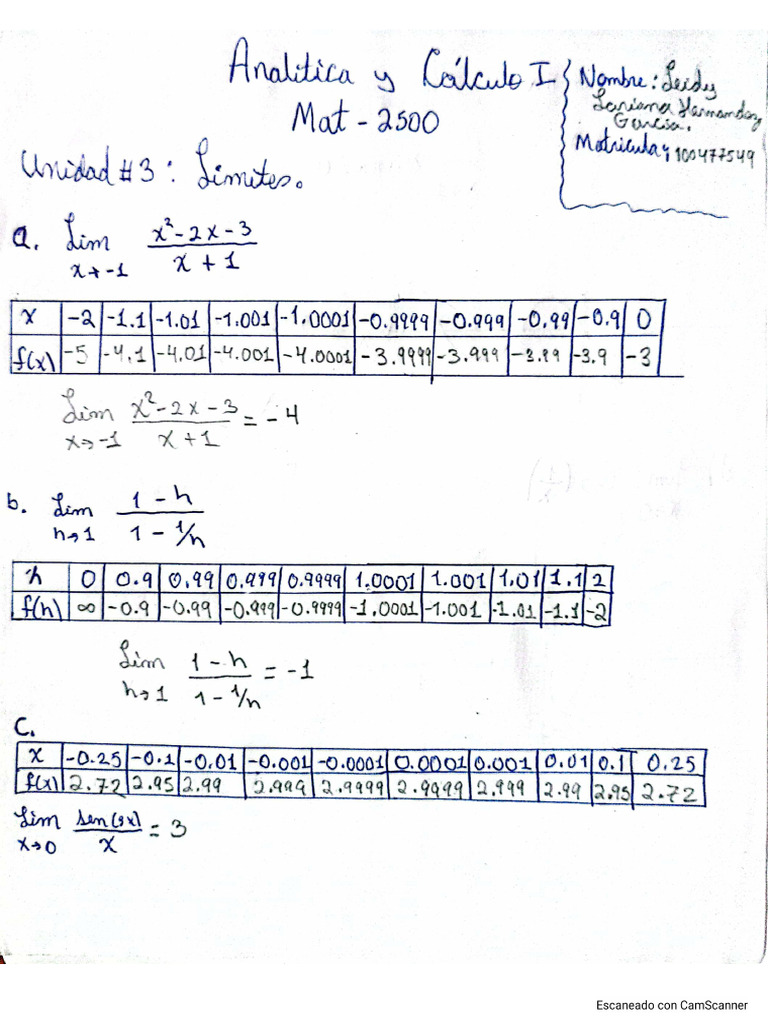 Analitica y Cálculo I
Mat - 2500
Nombre: Leidy
Loriana Hernandez
Garcia.
Matricula: 100477549
Unidad #3: Limites.
a. Lim x→-1 (x²-2x-3)/(x+1)
x | -2 | -1.1 | -1.01 | -1.001 | -1.0001 | -0.9999 | -0.999 | -0.99 | -0.9 | 0
f(x) | -5 | -4.1 | -4.01 | -4.001 | -4.0001 | -3.9999 | -3.999 | -3.99 | -3.9 | -3
Lim x→-1 (x²-2x-3)/(x+1) = -4
b. Lim h→1 (1-h)/(1-1/h)
h | 0 | 0.9 | 0.99 | 0.999 | 0.9999 | 1.0001 | 1.001 | 1.01 | 1.1 | 2
f(h) | ∞ | -0.9 | -0.99 | -0.999 | -0.9999 | -1.0001 | -1.001 | -1.01 | -1.1 | -2
Lim h→1 (1-h)/(1-1/h) = -1
C.
x | -0.25 | -0.1 | -0.01 | -0.001 | -0.0001 | 0.0001 | 0.001 | 0.01 | 0.1 | 0.25
f(x) | 2.72 | 2.95 | 2.99 | 2.999 | 2.9999 | 2.9999 | 2.999 | 2.99 | 2.95 | 2.72
Lim x→0 sen(3x)/x = 3
Escaneado con CamScanner